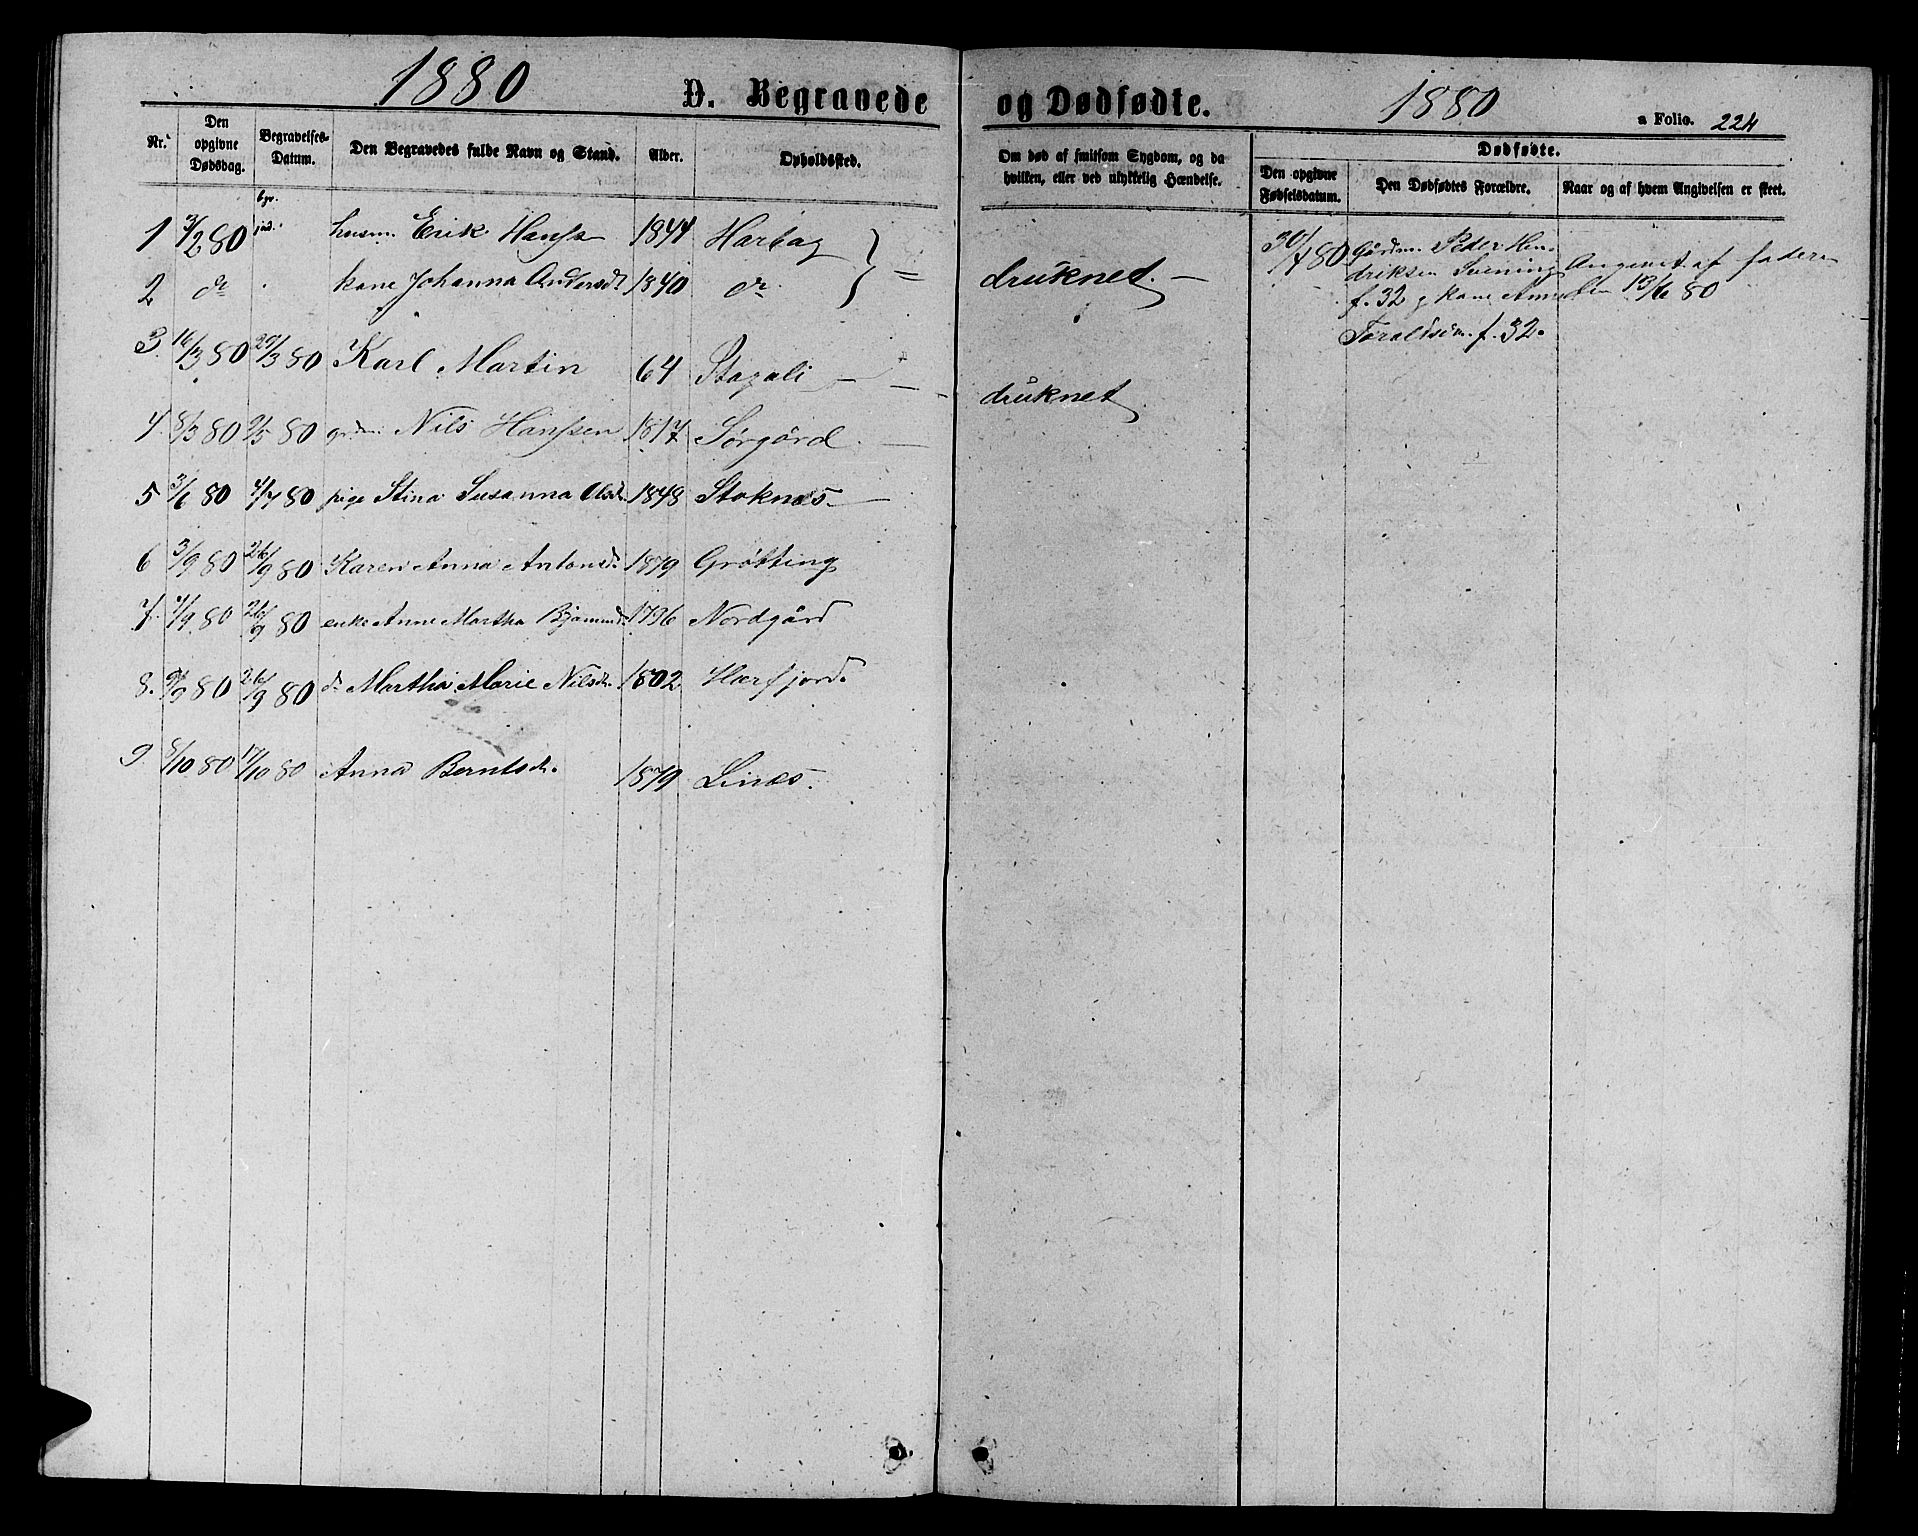 1880
D. Begravede og Dødfødte.
1880
a Folio. 224
Nr.
Den opgivne Dødsdag.
Begravelses-Datum.
Den Begravedes fulde Navn og Stand.
Alder.
Opholdssted.
Om død af smitsom Sygdom, og da hvilken, eller ved ulykkelig Hændelse.
Dødfødte.
Den opgivne Fødselsdatum.
Den Dødfødtes Forældre.
Naar og af hvem Angivelsen er skeet.
1 3/2 80 husm. Erik Hanss 1844
2 do kone Johanna Andersdt 1840 do
druknet.
3. 16/3 80 29/3 80 Karl Martin 64
druknet
4. 8/3 80 2/5 80 Nils Hanssen 1817 Sørgård
5 3/6 80 4/7 80 pige Stina Susanna Olsdt. 1848 Stoknes
6 3/9 80 26/9 80 Karen Anna Antonsdt 1879 Grøtting
7. 4/9 80 26/9 80 enke Anne Martha 1796 Nordgård
8. 9/9 80 26/9 80 do Martha Marie Nilsdt. 1802 Hærfjord.
9 8/10 80 17/10 80 Anna Berntsdt. 1879 Lines.
30/4 80
Gårdm. Peder Hen-
driksen Svening
f. 32 g kone
f. 32.
Angivet af faderen
13/6 80